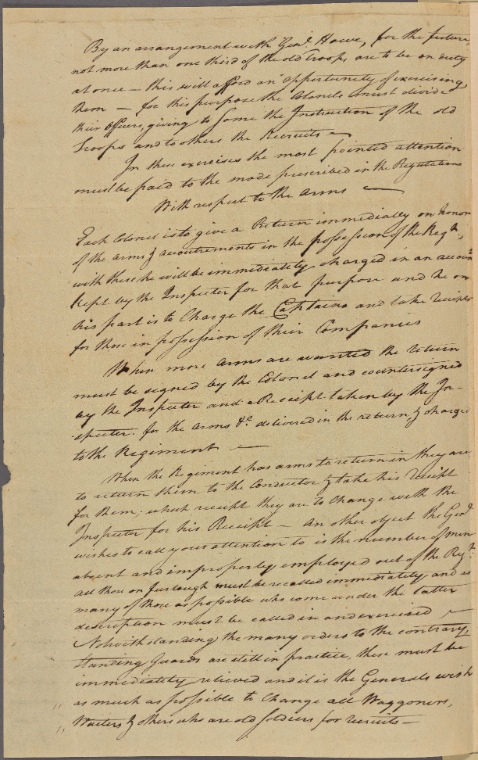 By an arrangement with Genl. Howe, for the future,
not more than one third of the old Troops, are to be on duty
at once — this will afford an opportunity of exercising
them — for this purpose the Colonels must divide
their officers, giving to some the Instruction of the old
Troops and to others the Recruits —
In these exercises the most pointed attention
must be paid to the mode prescribed in the Regulations
With respect to the Arms —
Each Colonel is to give a Return immediately on honor
of the arms & accoutrements in the possession of the Regt.,
with these he will be immediately charged in an account
kept by the Inspector for that purpose and he on
his part is to Charge the Captains and take Receipts
for those in possession of their Companies
When more arms are wanted the return
must be signed by the Colonel and countersigned
by the Inspector and a Receipt taken by the In-
spector for the arms &c. delivered in the return & charged
to the Regiment —
When the Regiment has arms to return in they are
to return them to the Conductor & take his Receipt
for them, which receipt they are to change with the
Inspector for his Receipt — An other object the Genl.
wishes to call your attention to is the number of men
absent and improperly employed out of the Regt.
all those on furlough must be recalled immediately and as
many of those as possible who come under the latter
description must be called in and exercised —
Notwithstanding the many orders to the contrary,
standing Guards are still in practice, these must be
immediately relieved and it is the Generals wish
as much as possible to change all Waggoners,
Waiters & others who are old soldiers for recruits —